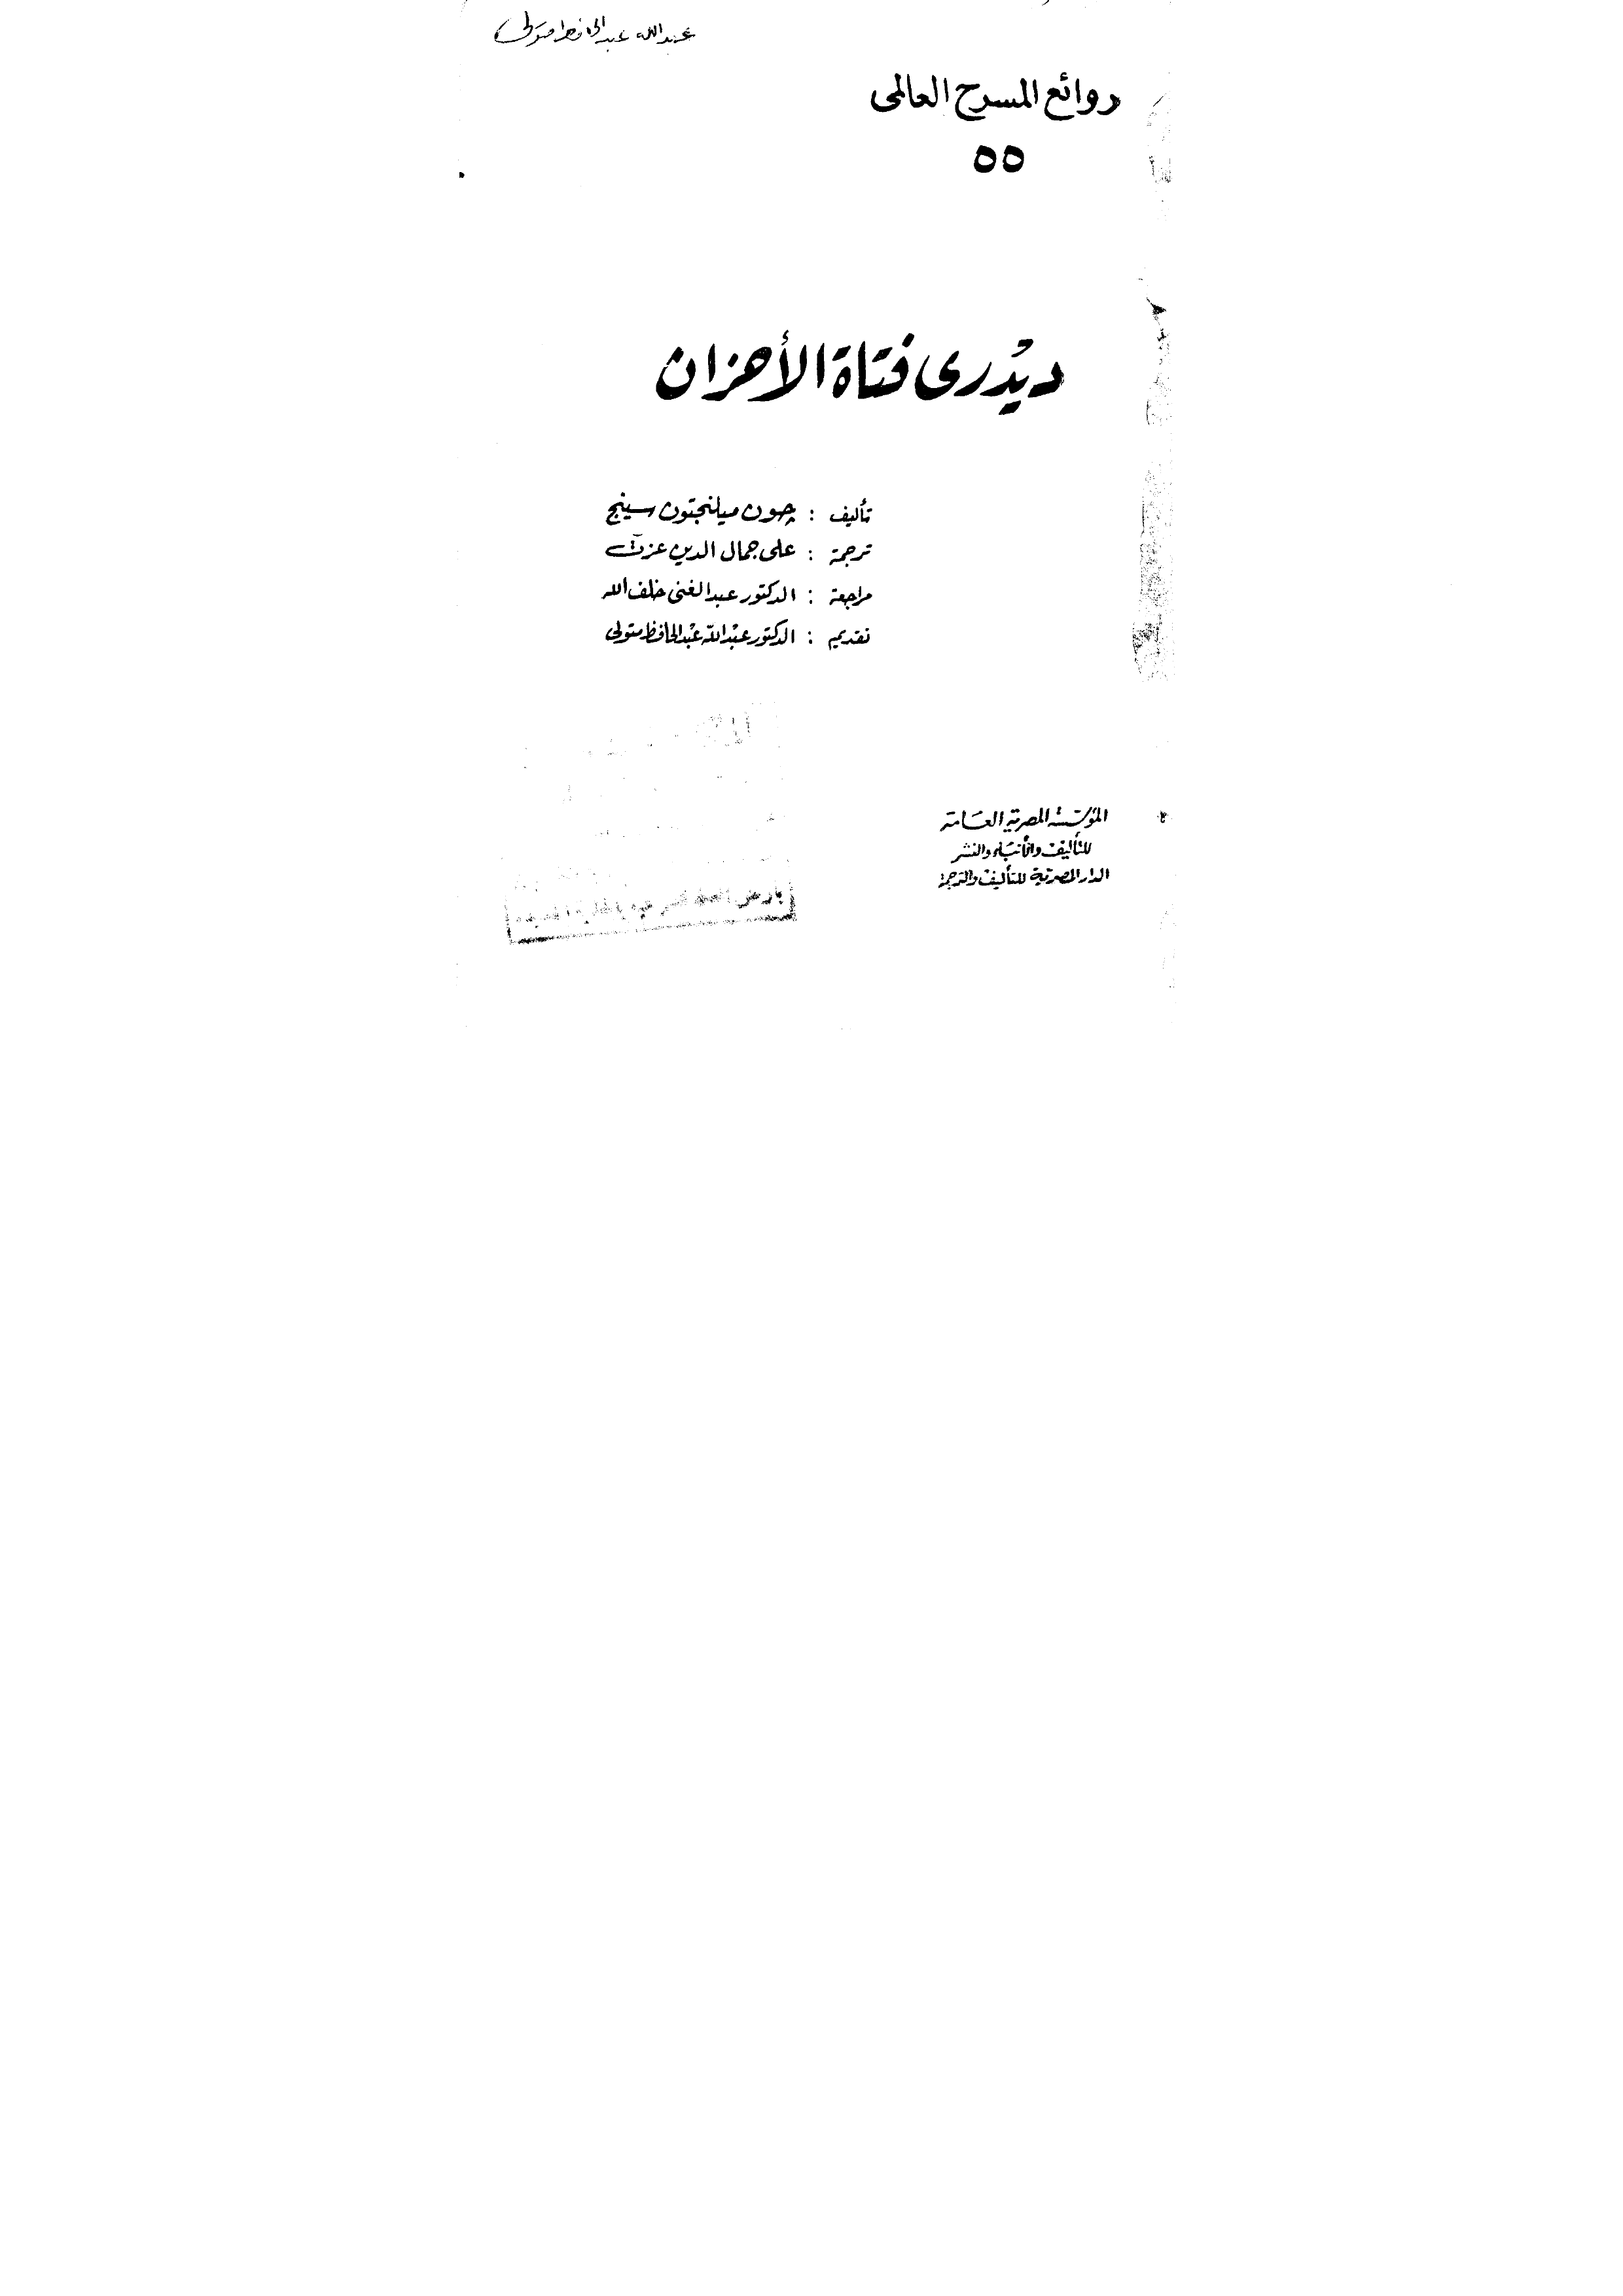 عبدالله عبدالحافظ متولى
روائع المسرح العالمى
٥٥
ديدرى فتاة الأحزان
تأليف : چون ميلنجتون سينج
ترجمة : على جمال الدين عزت
مراجعة : الدكتور عبدالغنى خلف الله
تقديم : الدكتور عبدالله عبدالحافظ متولى
المؤسسة المصرية العامة
للتأليف والأنباء والنشر
الدار المصرية للتأليف والترجمة